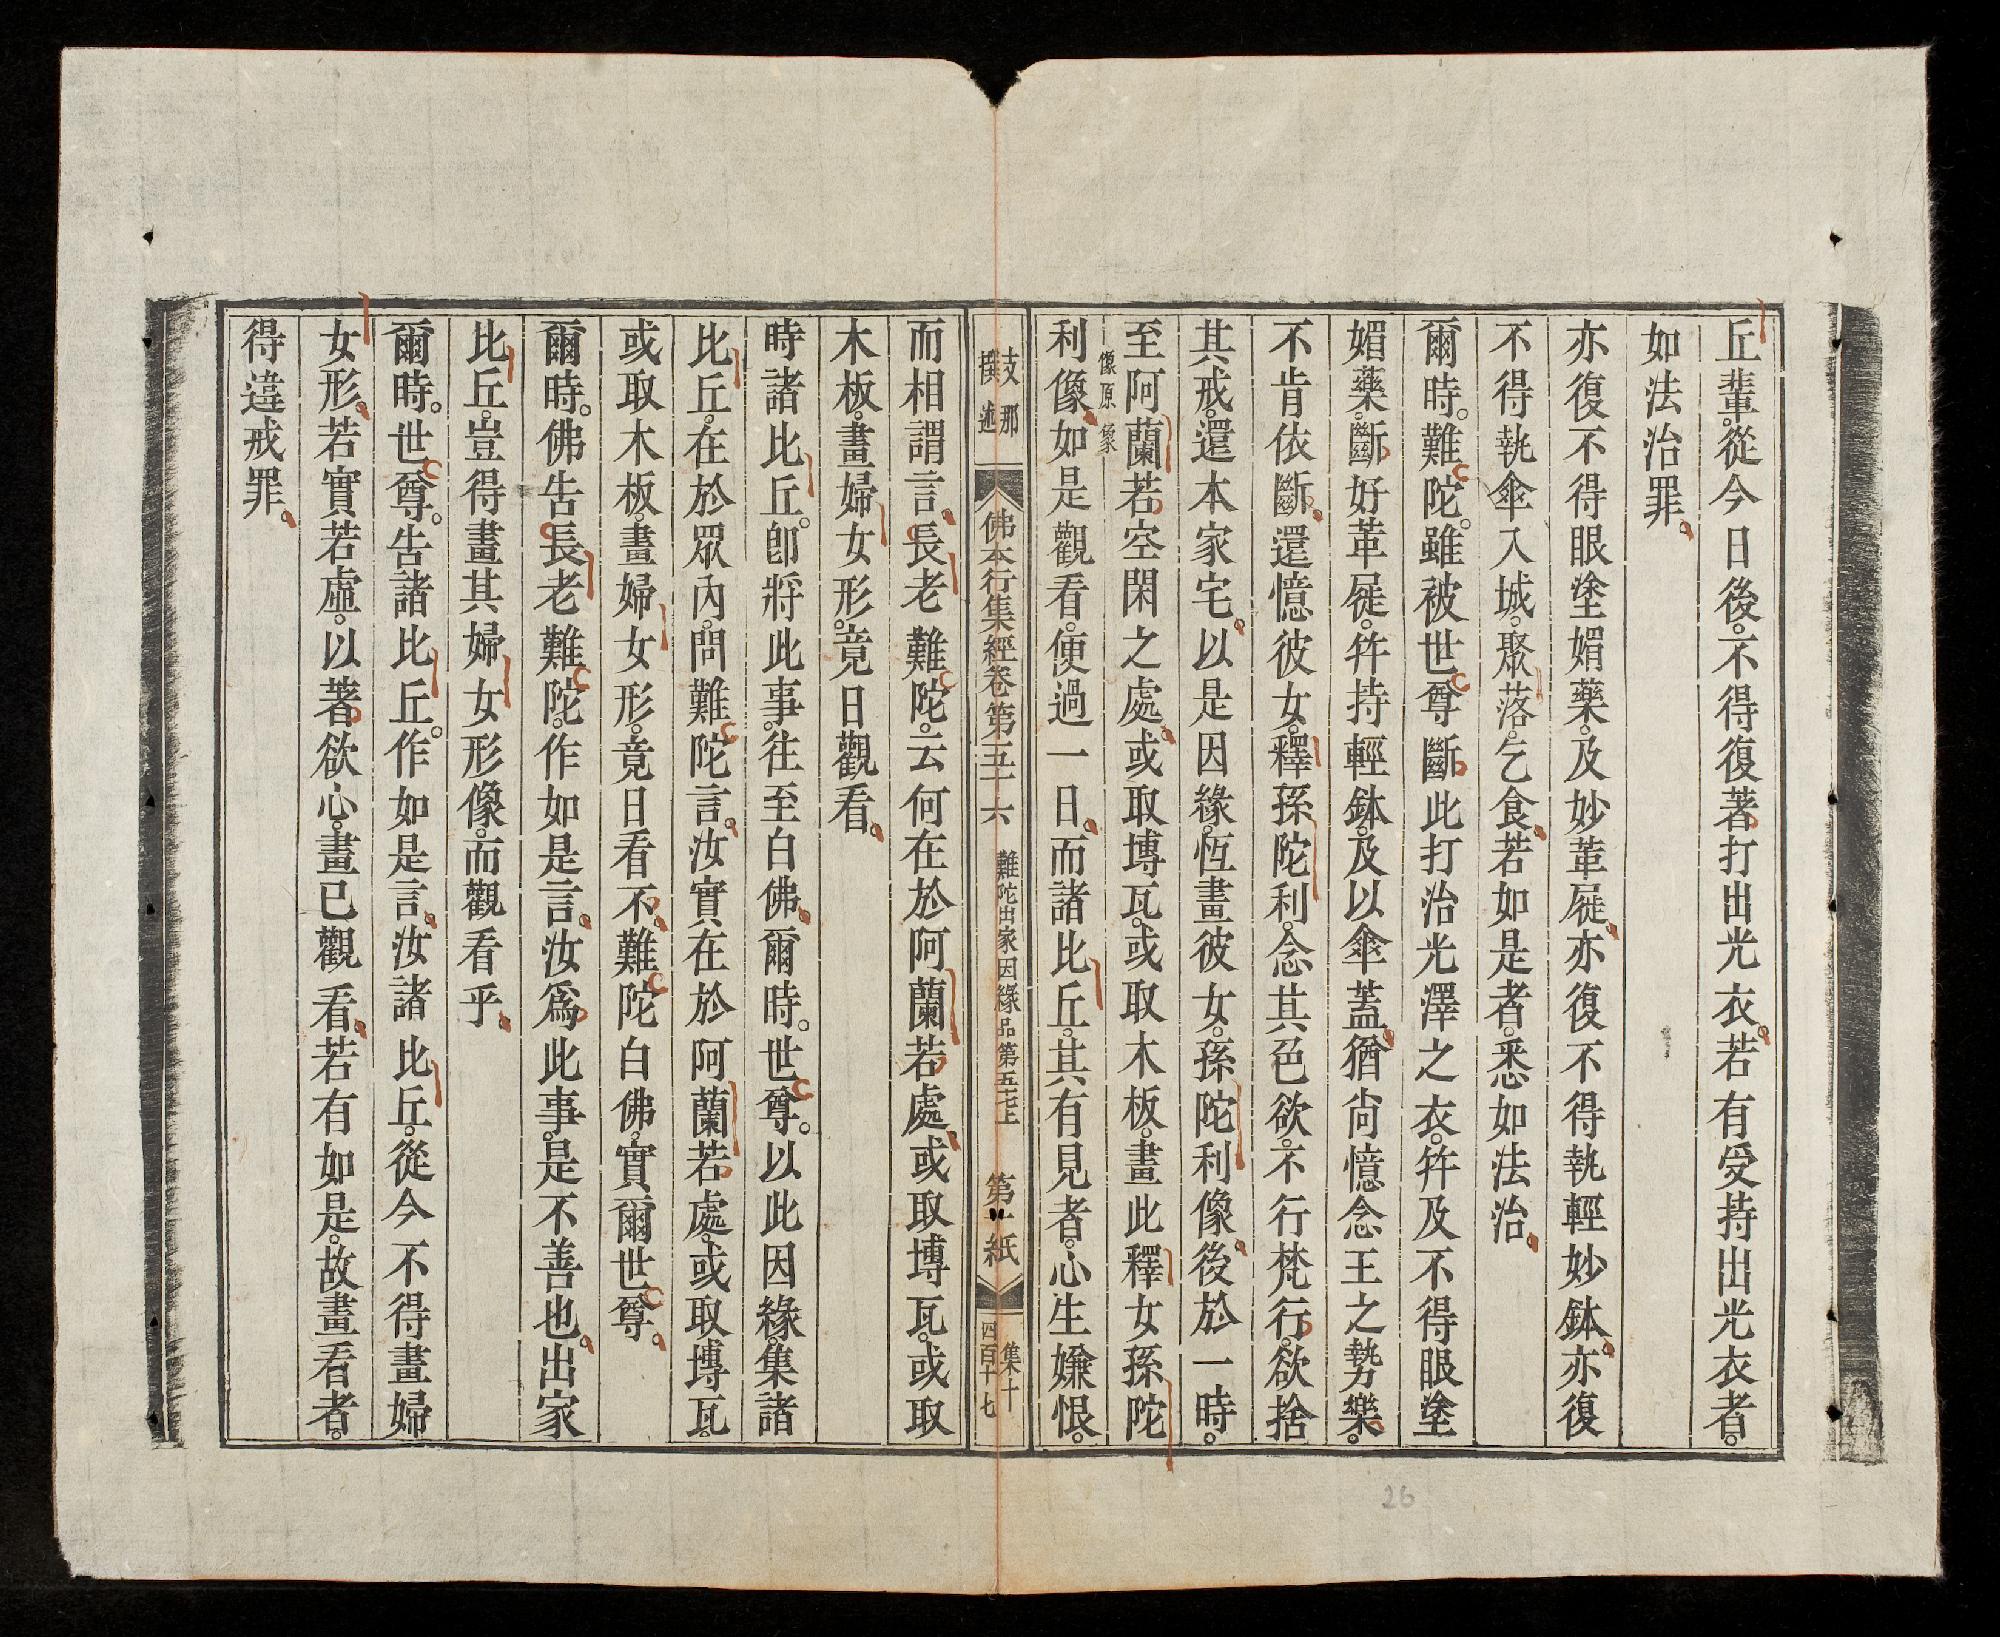 丘輩。從今日後。不得復著打出光衣。若有受持出光衣者。
如法治罪。
亦復不得眼塗媚藥。及妙革屣。亦復不得執輕妙鉢。亦復
不得執傘入城。聚落。乞食。若如是者。悉如法治。
爾時。難陀。雖被世尊斷此打治光澤之衣。并及不得眼塗
媚藥。斷好革屣。并持輕鉢。及以傘蓋。猶尚憶念王之勢樂。
不肯依斷。還憶彼女。釋孫陀利。念其色欲。不行梵行。欲捨
其戒。還本家宅。以是因緣。恆畫彼女。孫陀利像。後於一時。
至阿蘭若。空閑之處。或取塼瓦。或取木板。畫此釋女孫陀
像原 像
利像。如是觀看。便過一日。而諸比丘。其有見者。心生嫌恨。
支那
撰述
佛本行集經卷第五十六
難陀出家因緣品第五七上
第二紙
集十
四百十七
而相謂言。長老難陀。云何在於阿蘭若處。或取塼瓦。或取
木板。畫婦女形。竟日觀看。
時諸比丘。卽將此事。往至白佛。爾時。世尊。以此因緣。集諸
比丘。在於眾內。問難陀言。汝實在於阿蘭若處。或取塼瓦。
或取木板。畫婦女形。竟日看不。難陀白佛。實爾世尊。
爾時。佛告長老難陀。作如是言。汝爲此事。是不善也。出家
比丘。豈得畫其婦女形像。而觀看乎。
爾時。世尊。告諸比丘。作如是言。汝諸比丘。從今不得畫婦
女形。若實若虛。以著欲心。畫已觀看。若有如是。故畫看者。
得違戒罪。
26